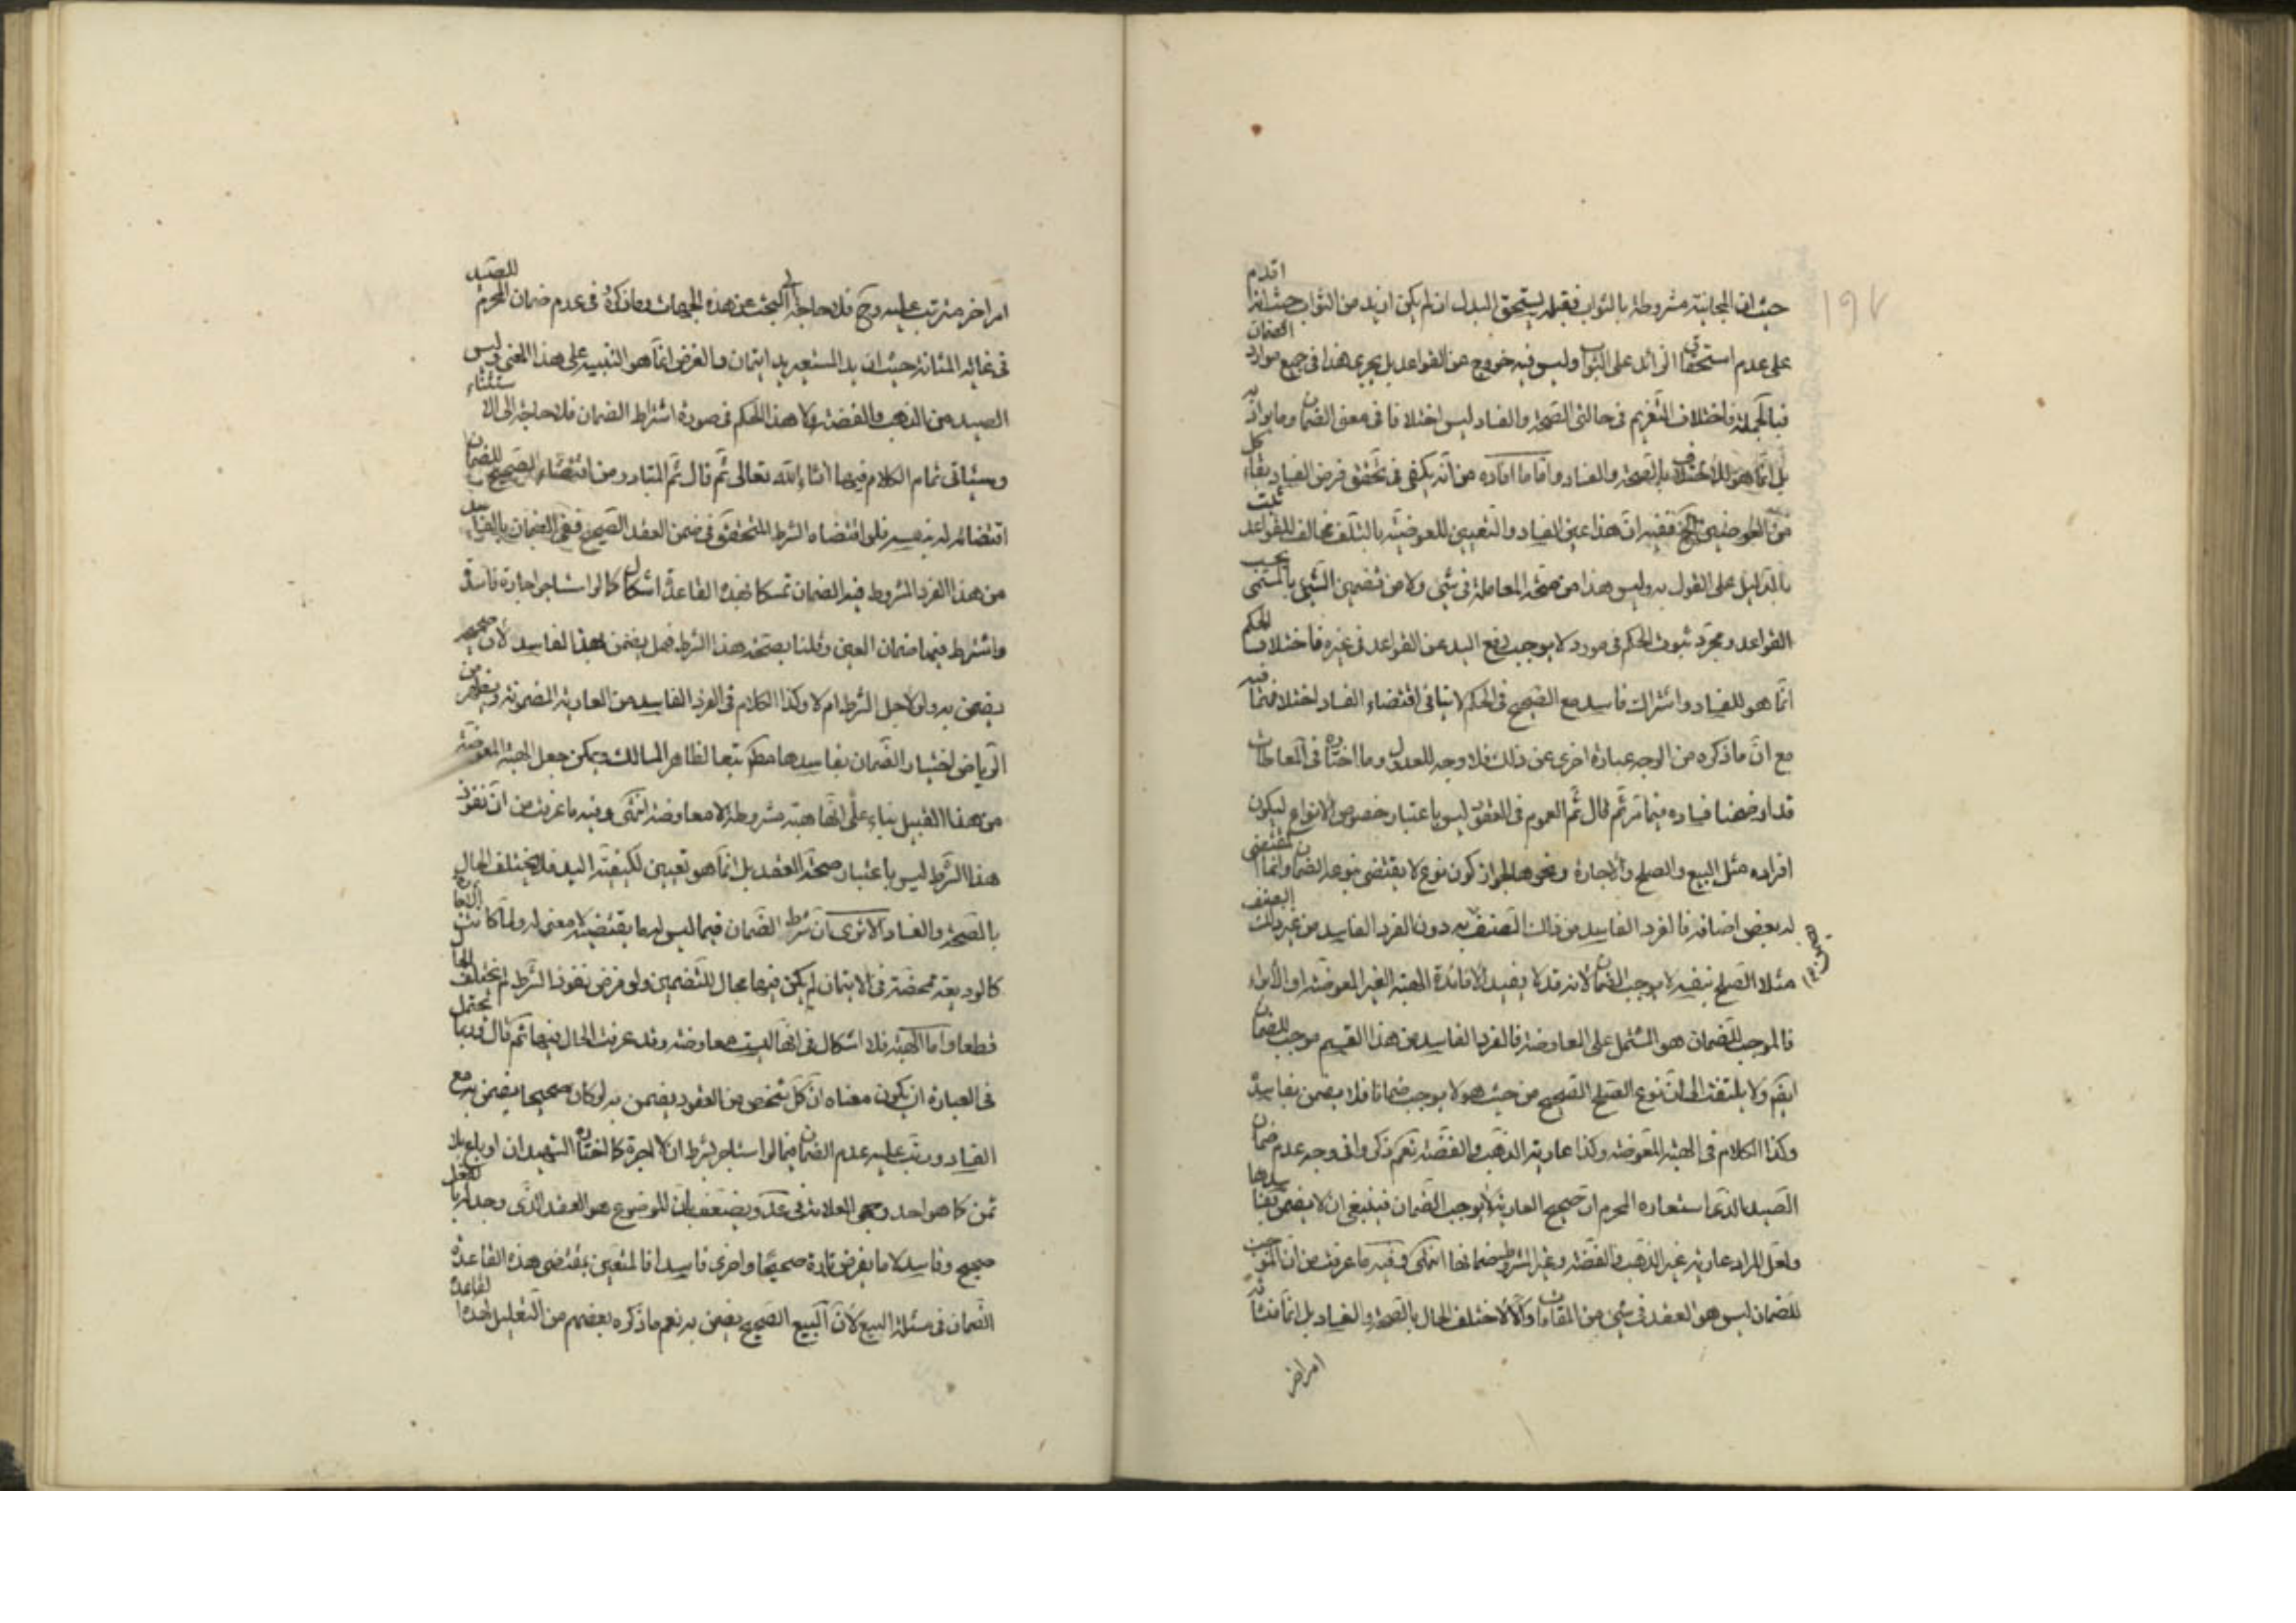 حيث ان المجانية مشروطة بالثواب فقبله يستحق البدل ان لم يكن ازيد من الثواب حيث انه اقدم
على عدم استحقاق الزائد على الثواب وليس فيه خروج عن القواعد بل يجري هذا في جميع موارد الضمان
فبالجملة فاختلاف التغريم في حالتي الصحة والفساد ليس اختلافا في معنى الضمان وما يراد به
بل انما هو للاختلاف بالصحة والفساد واما ما افاده من انه يكفي في تحقق فرض الفساد بقاء كل
من العوضين الخ ففيه ان هذا عين الفساد والتعيين للعوضية بالتلف مخالف للقواعد ثبت
بالدليل على القول به وليس هذا من صحة المعاملة في شئ ولا من تضمين الشئ بالمسمى بحسب
القواعد ومجرد ثبوت الحكم في مورد لا يوجب رفع اليد عن القواعد في غيره فاختلاف الحكم
انما هو للفساد واشتراك فاسد مع الصحيح في الحكم لا ينافي اقتضاء الفساد اختلافهما فيه
مع ان ما ذكره من الوجه عبارة اخرى عن ذلك فلا وجه للعدول وما اختاره في المعاطات
قد اوضحنا فساده فيما مر ثم قال ثم العموم في العقود ليس باعتبار خصوص الانواع ليكون
افراده مثل البيع والصلح والاجارة ونحوها لجواز كون نوع لا يقتضي بنوعه الضمان وانما المقتضي
له بعض اصنافه فالفرد الفاسد من ذلك الصنف يضمن به دون الفرد الفاسد من غير ذلك الصنف
مثلا الصلح بنفسه لا يوجب الضمان لانه قد لا يفيد الا فائدة الهبة الغير المعوضة او الابراء
فالموجب للضمان هو المشتمل على المعاوضة فالفرد الفاسد من هذا القسم موجب للضمان
ايضا ولا يلتفت الى ان نوع الصلح الصحيح من حيث هو لا يوجب ضمانا فلا يضمن بفاسده
وكذا الكلام في الهبة المعوضة وكذا عارية الذهب والفضة نعم ذكروا في وجه عدم ضمان
الصيد الذي استعاره المحرم ان صحيح العارية لا يوجب الضمان فينبغي ان لا يضمن بفاسدها
ولعل المراد عارية غير الذهب والفضة وغير المشروط ضمانها انتهى وفيه ما عرفت من ان الموجب
للضمان ليس هو العقد في شئ من المقامات والا لاختلف الحال بالصحة والفساد بل انما منشأه
امر اخر
امر اخر مترتب عليه وح فلا حاجة الى البحث عن هذه الجهات وما ذكروه في عدم ضمان المحرم للصيد
في غاية المتانة حيث ان يد المستعير يد ايتمان والغرض انما هو التنبيه على هذا المعنى وليس
الصيد من الذهب والفضة ولا هذا الحكم في صورة اشتراط الضمان فلا حاجة الى الاستثناء
وسيأتي تمام الكلام فيها انشاء الله تعالى ثم قال ثم المتبادر من اقتضاء الصحيح للضمان
اقتضائه له بنفسه فلو اقتضاه الشرط المتحقق في ضمن العقد الصحيح ففي الضمان بالفاسد
من هذا الفرد المشروط فيه الضمان تمسكا بهذه القاعدة اشكال كما لو استاجر اجارة فاسدة
واشترط فيها ضمان العين وقلنا بصحة هذا الشرط فهل يضمن بهذا الفاسد لان صحيحه
يضمن به ولو لاجل الشرط ام لا وكذا الكلام في الفرد الفاسد من العارية المضمونة ويظهر من
الرياض اختيار الضمان بفاسدها مطلقا تبعا لظاهر المسالك ويمكن جعل الهبة المعوضة
من هذا القبيل بناء على انها هبة مشروطة لا معاوضة انتهى وفيه ما عرفت من ان نفوذ
هذا الشرط ليس باعتبار صحة العقد بل انما هو تعيين لكيفية اليد فلا يختلف الحال
بالصحة والفساد الا ترى ان شرط الضمان فيما ليس له ما يقتضيه لا معنى له ولما كانت
كالوديعة متمحضة في الايتمان لم يكن فيها مجال للتضمين ولو فرض نفوذ الشرط لم يختلف الحال
قطعا واما الهبة فلا اشكال في انها ليست معاوضة وقد عرفت الحال فيها ثم قال وربما يحتمل
في العبارة ان يكون معناه ان كل شخص من العقود يضمن به لو كان صحيحا يضمن به مع
الفساد ورتب عليه عدم الضمان فيما لو استاجر بشرط ان لا اجرة كما اختاره الشهيدان او باع بلا
ثمن كما هو احد وجهي العلامة في عد ويضعف بان الموضوع هو العقد الذي وجد له بالفعل
صحيح وفاسد لا ما يفرض تارة صحيحا واخرى فاسدا فالمتعين بمقتضى هذه القاعدة
الضمان في مسئلة البيع لان البيع الصحيح يضمن به نعم ما ذكره بعضهم من التعليل لهذه القاعدة